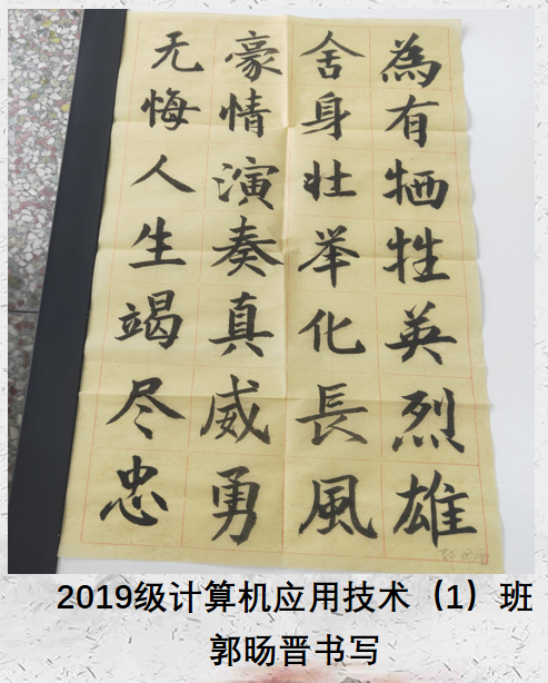 為有牺牲英烈雄
舍身壮举化長風
豪情演奏真威勇
无悔人生竭尽忠
2019级计算机应用技术（1）班
郭旸晋书写